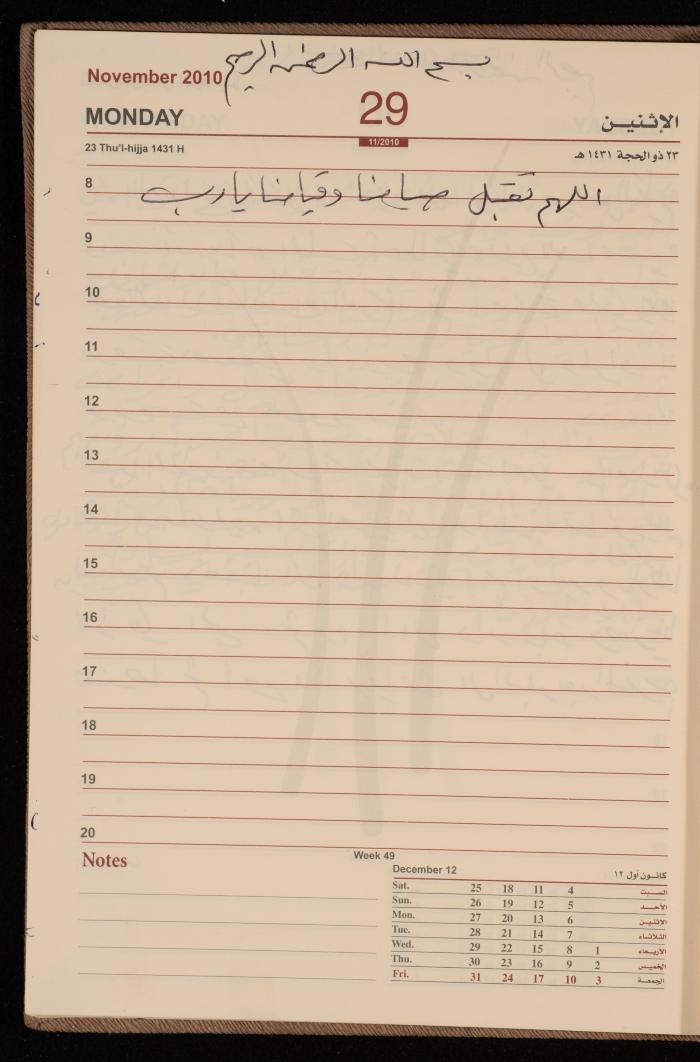 بسم الله الرحمن الرحيم
November 2010
MONDAY 29 الإثنين
23 Thu'l-hijja 1431 H 11/2010 ٢٣ ذو الحجة ١٤٣١ هـ
8 اللهم تقبل صيامنا وقيامنا يارب
9
10
11
12
13
14
15
16
17
18
19
20
Notes
Week 49
December 12 كانون أول ١٢
Sat. 25 18 11 4 السبت
Sun. 26 19 12 5 الأحد
Mon. 27 20 13 6 الإثنين
Tue. 28 21 14 7 الثلاثاء
Wed. 29 22 15 8 1 الأربعاء
Thu. 30 23 16 9 2 الخميس
Fri. 31 24 17 10 3 الجمعة